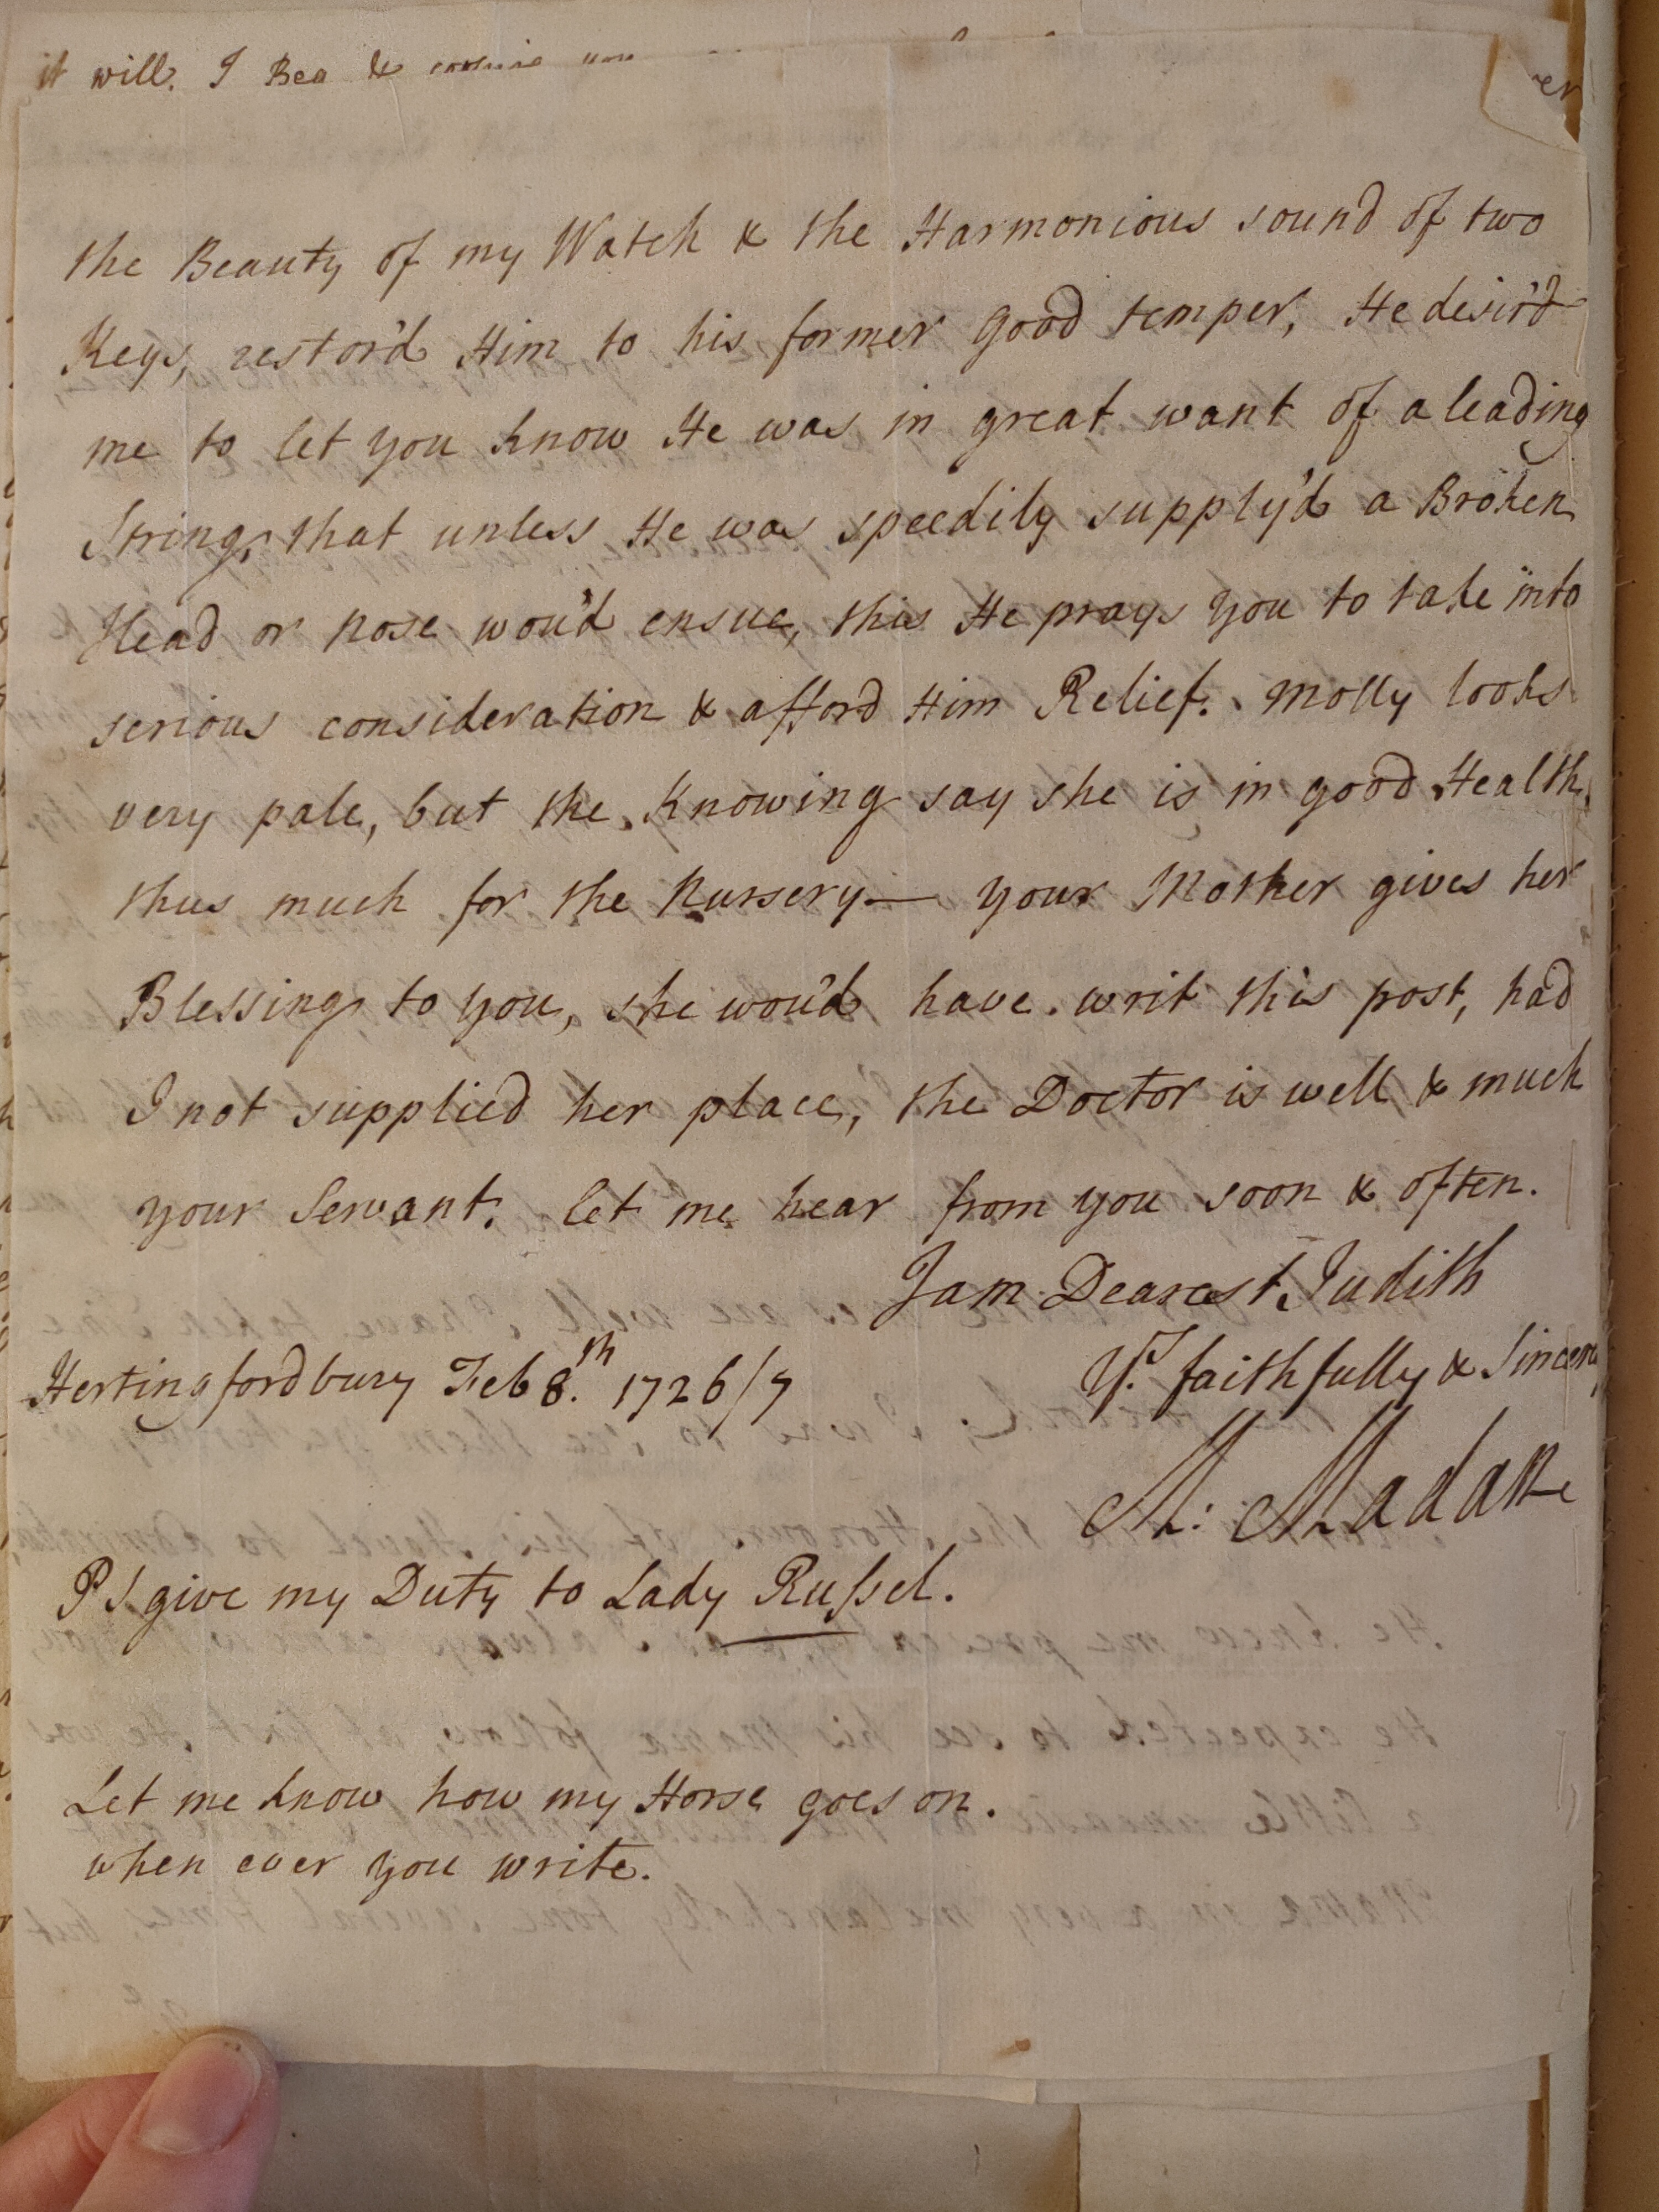 it will. I Beg &
er
the Beauty of my Watch & the Harmonious sound of two
Keys, restor'd Him to his former good temper, He desir'd
me to let you know He was in great want of a leading
String, that unless He was speedily supply'd a Broken
Head or Nose wou'd ensue, this He prays you to take into
serious consideration & afford Him Relief. Molly looks
very pale, but the Knowing say she is in good Health,
thus much for the Nursery— your Mother gives her
Blessing to you, she wou'd have writ this post, had
I not supplied her place, the Doctor is well & much
your Servant. let me hear from you soon & often.
I am Dearest Judith
Yrs faithfully & Sincerely
Hertingfordbury Feb 8.th 1726/7
M: Madan
PS give my Duty to Lady Russel.
Let me know how my Horse goes on.
when ever you write.